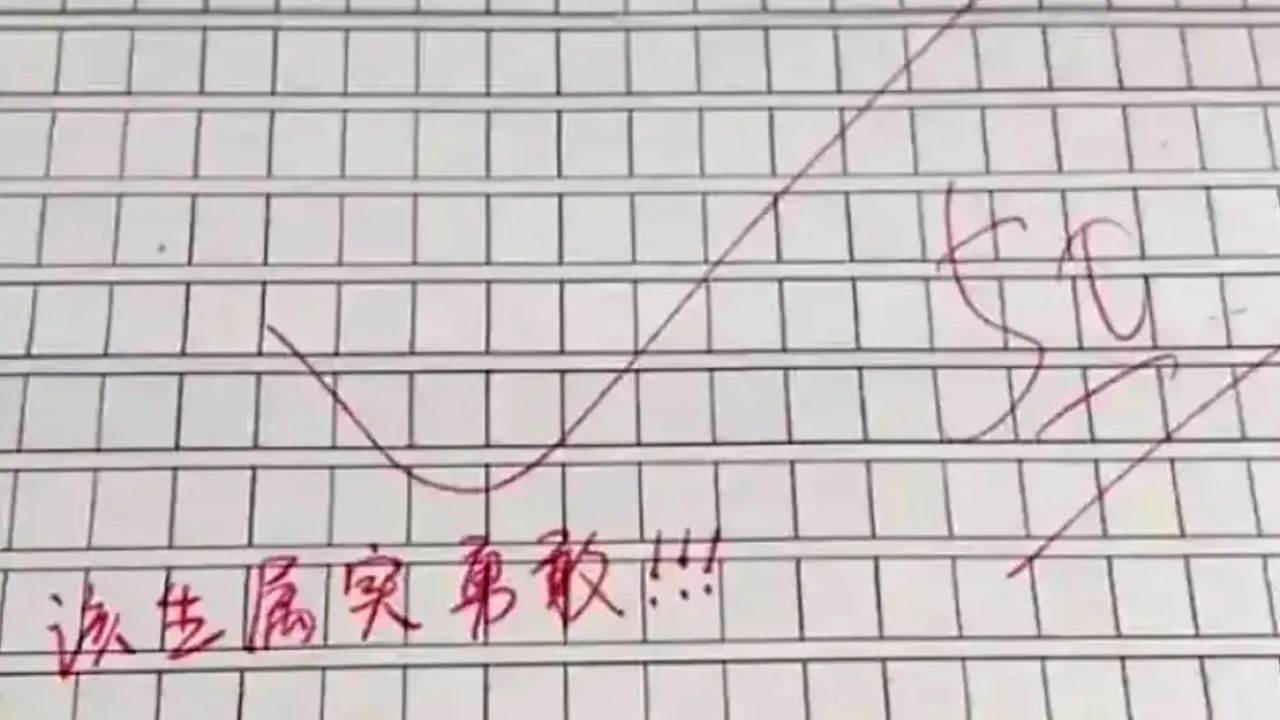 50
该生属实勇敢!!!